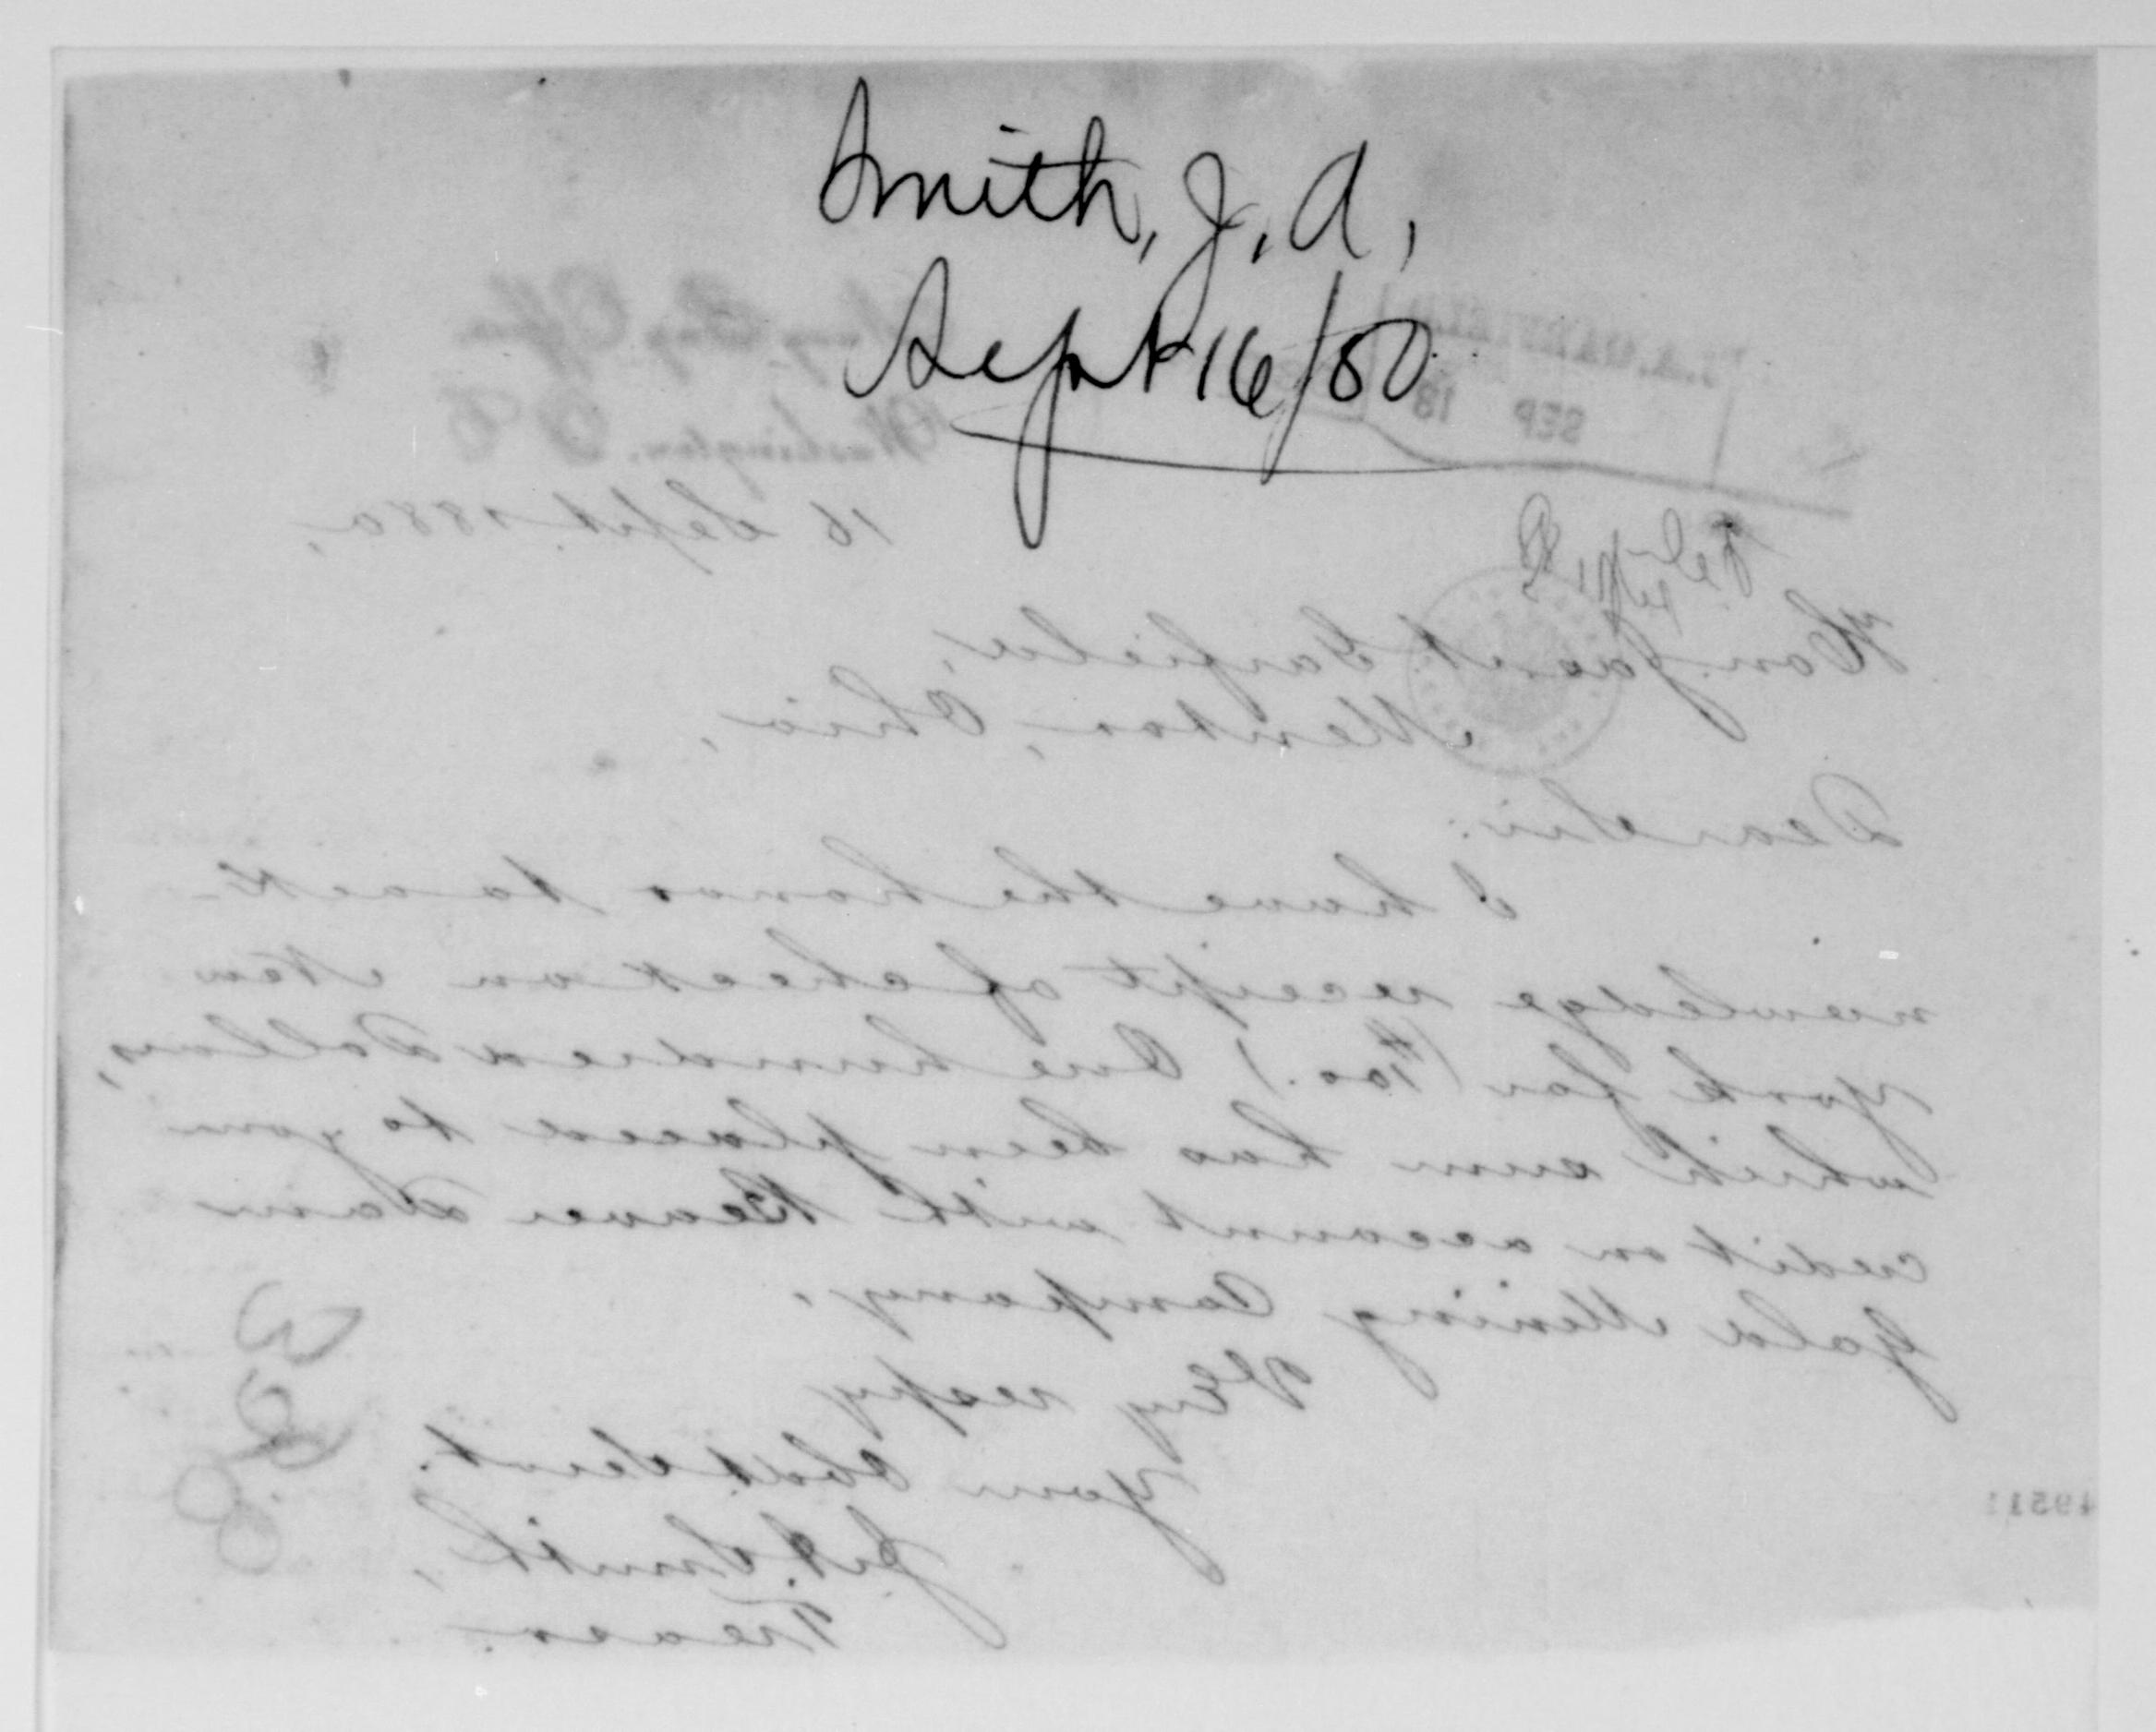 Smith, J. A.,
Sept 16/80
Navy Pay Office
Washington, D C
J. A. GARFIELD
SEP 18
16 Sept. 1880.
Hon. Jas. A Garfield,
Mentor, Ohio.
Dear Sir:
I have the honor to ack-
nowledge receipt of check on New
York for ($100.) One hundred Dollars,
which sum has been placed to your
credit on account with Beaver Dam
Gold Mining Company.
Very respy
Your Obdt Servt.
J. A. Smith,
Treasr.